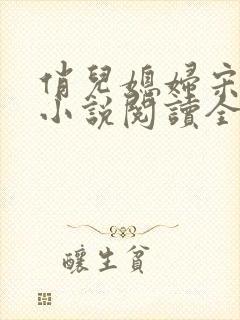 俏兒媳婦宋
小說閱讀全
釀生貧